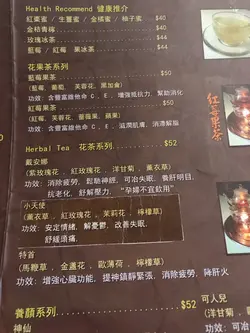 Health Recommend 健康推介
紅棗蜜 / 生薑蜜 / 金橘蜜 / 柚子蜜 $40
金桔青檸 $40
玫瑰冰茶 $44
藍莓 / 紅莓 果冰茶 $44
花果茶系列
藍莓果茶 $50
(藍莓, 葡萄, 芙蓉花, 黑加侖)
功效: 含豐富維他命 C, E, 增強抵抗力, 幫助消化
紅莓果茶 $50
(紅莓, 芙蓉花, 薔薇果, 蘋果)
功效: 含豐富維他命 C, E, 滋潤肌膚, 消滯解脂
紅莓果茶
Herbal Tea 花茶系列 $52
戴安娜
(紫玫瑰花, 紅玫瑰花, 洋甘菊, 薰衣草)
功效: 消除疲勞, 鬆馳神經, 可治失眠, 養肝明目,
抗老化, 舒解壓力, "孕婦不宜飲用"
小天使
(薰衣草, 紅玫瑰花, 茉莉花, 檸檬草)
功效: 安定情緒, 解憂鬱, 改善失眠,
舒緩頭痛
特首
(馬鞭草, 金盞花, 歐薄荷, 檸檬草)
功效: 增強心臟功能, 提神鎮靜緊張, 消除疲勞, 降肝火
養顏系列 $52
可人兒
神仙
(洋甘菊,
功效: 可